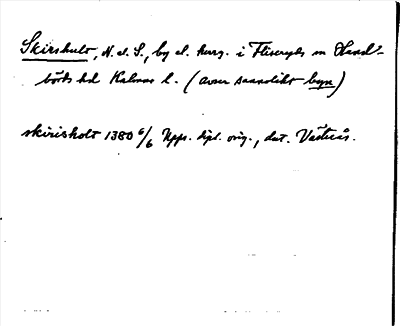 Skirshult, N. d. S., by el. herrg. i Fliseryds sn Hand-
börds hd Kalmar l. (avser sannolikt byn)
skirisholt 1380 6/6 Upps. dipl. orig., dat. Västerås.